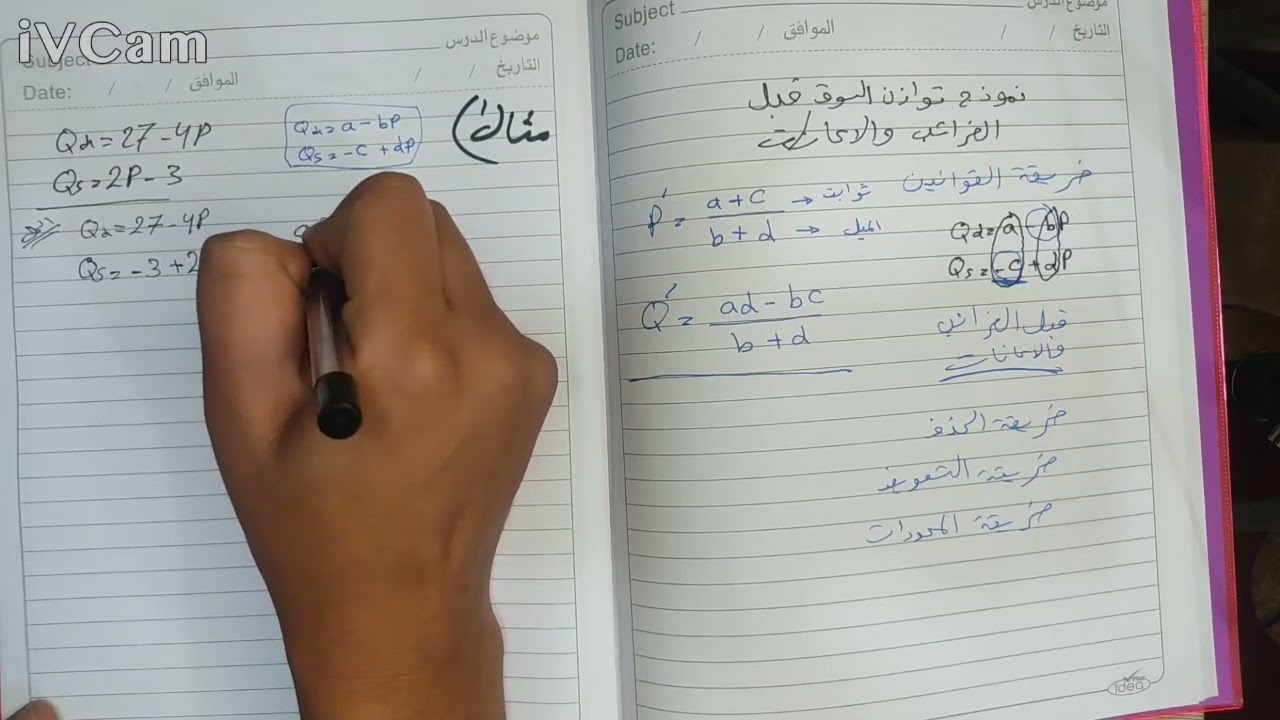 iVCam
Subject
موضوع الدرس
Date: / / الموافق / / التاريخ
مثال (1
Qd = 27 - 4P
Qs = 2P - 3
Qd = a - bP
Qs = -c + dP
Qd = 27 - 4P
Qs = -3 + 2
a
Subject
موضوع الدرس
Date: / / الموافق / / التاريخ
نموذج توازن السوق قبل
الضرائب والاعانات
طريقة القوانين
P' = a + c / b + d
ثوابت →
الميل →
Qd = a - bP
Qs = -c + dP
Q' = ad - bc / b + d
قبل الضرائب
والاعانات
طريقة الحذف
طريقة التعويض
طريقة المحددات
idea